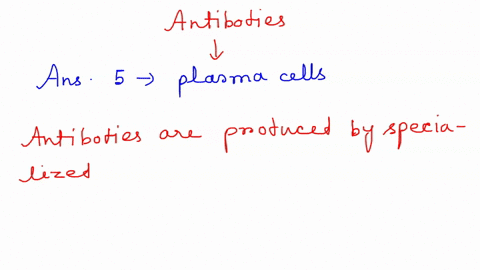 Antiboties
↓
Ans. 5 → plasma cells
Antiboties are produced by specia-
lized